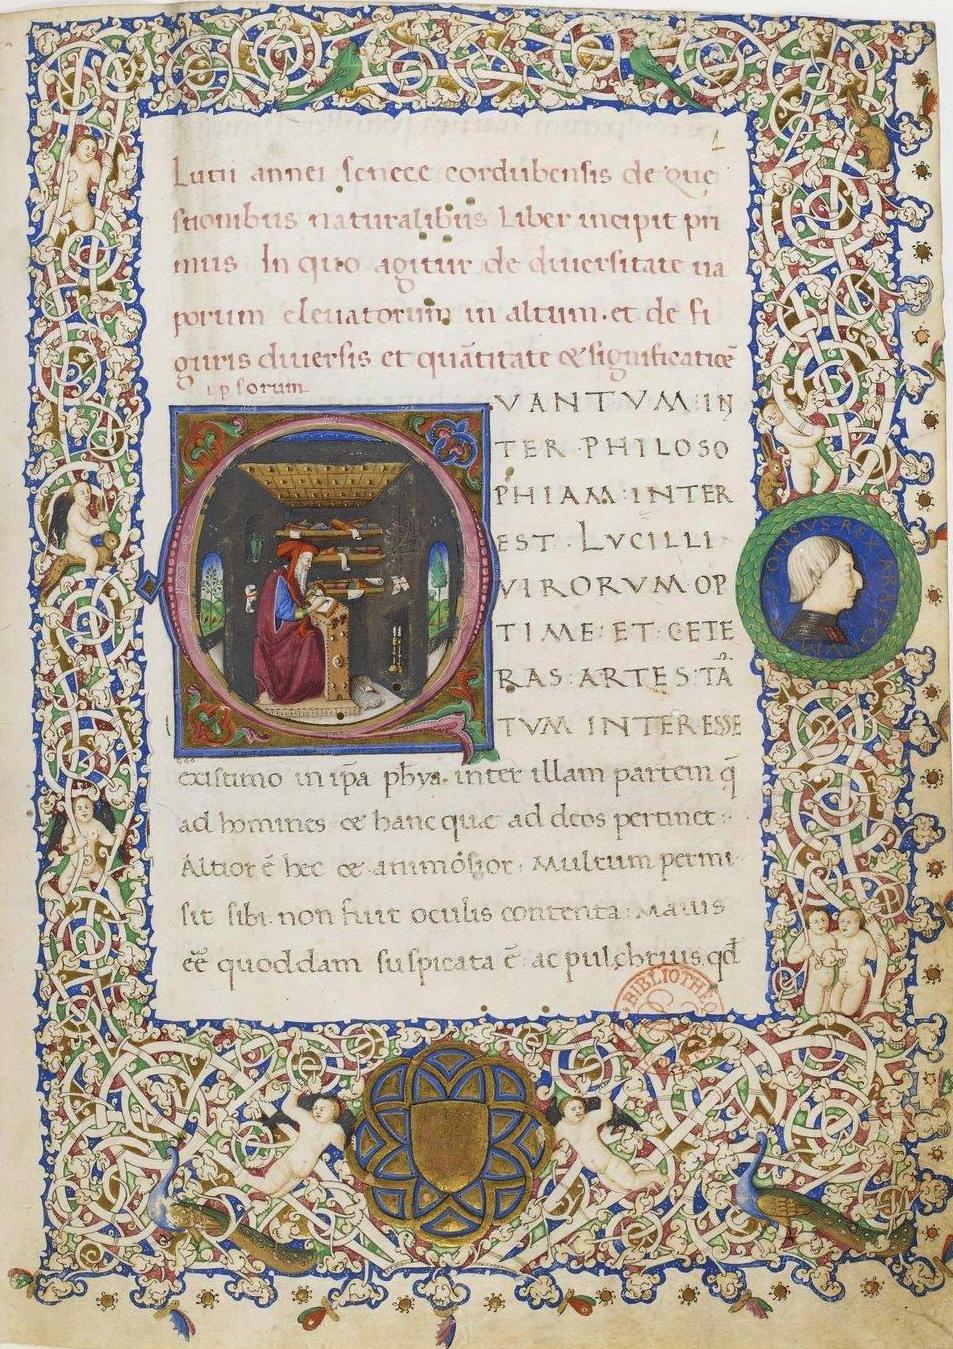 1
Lutii annei senece cordubensis de que
stionibus naturalibus Liber incipit pri
mus In quo agitur de diuersitate ua
porum eleuatorum in altum. et de fi
guris diuersis et quātitate & significatiōe
ipsorum
QVANTVM IN
TER PHILOSO
PHIAM INTER
EST LVCILLI
VIRORVM OP
TIME ET CETE
RAS ARTES TĀ
TVM INTERESSE
ALFONSVS REX ARAGONVM
existimo in ip̄a ph̄ya. inter illam partem q̄
ad homines & hanc quae ad deos pertinet:
Altior ē hec & animōsior. Multum permi
sit sibi. non fuit oculis contenta: Maius
ēē quoddam suspicata ē ac pulchrius. qd̄
BIBLIOTHE